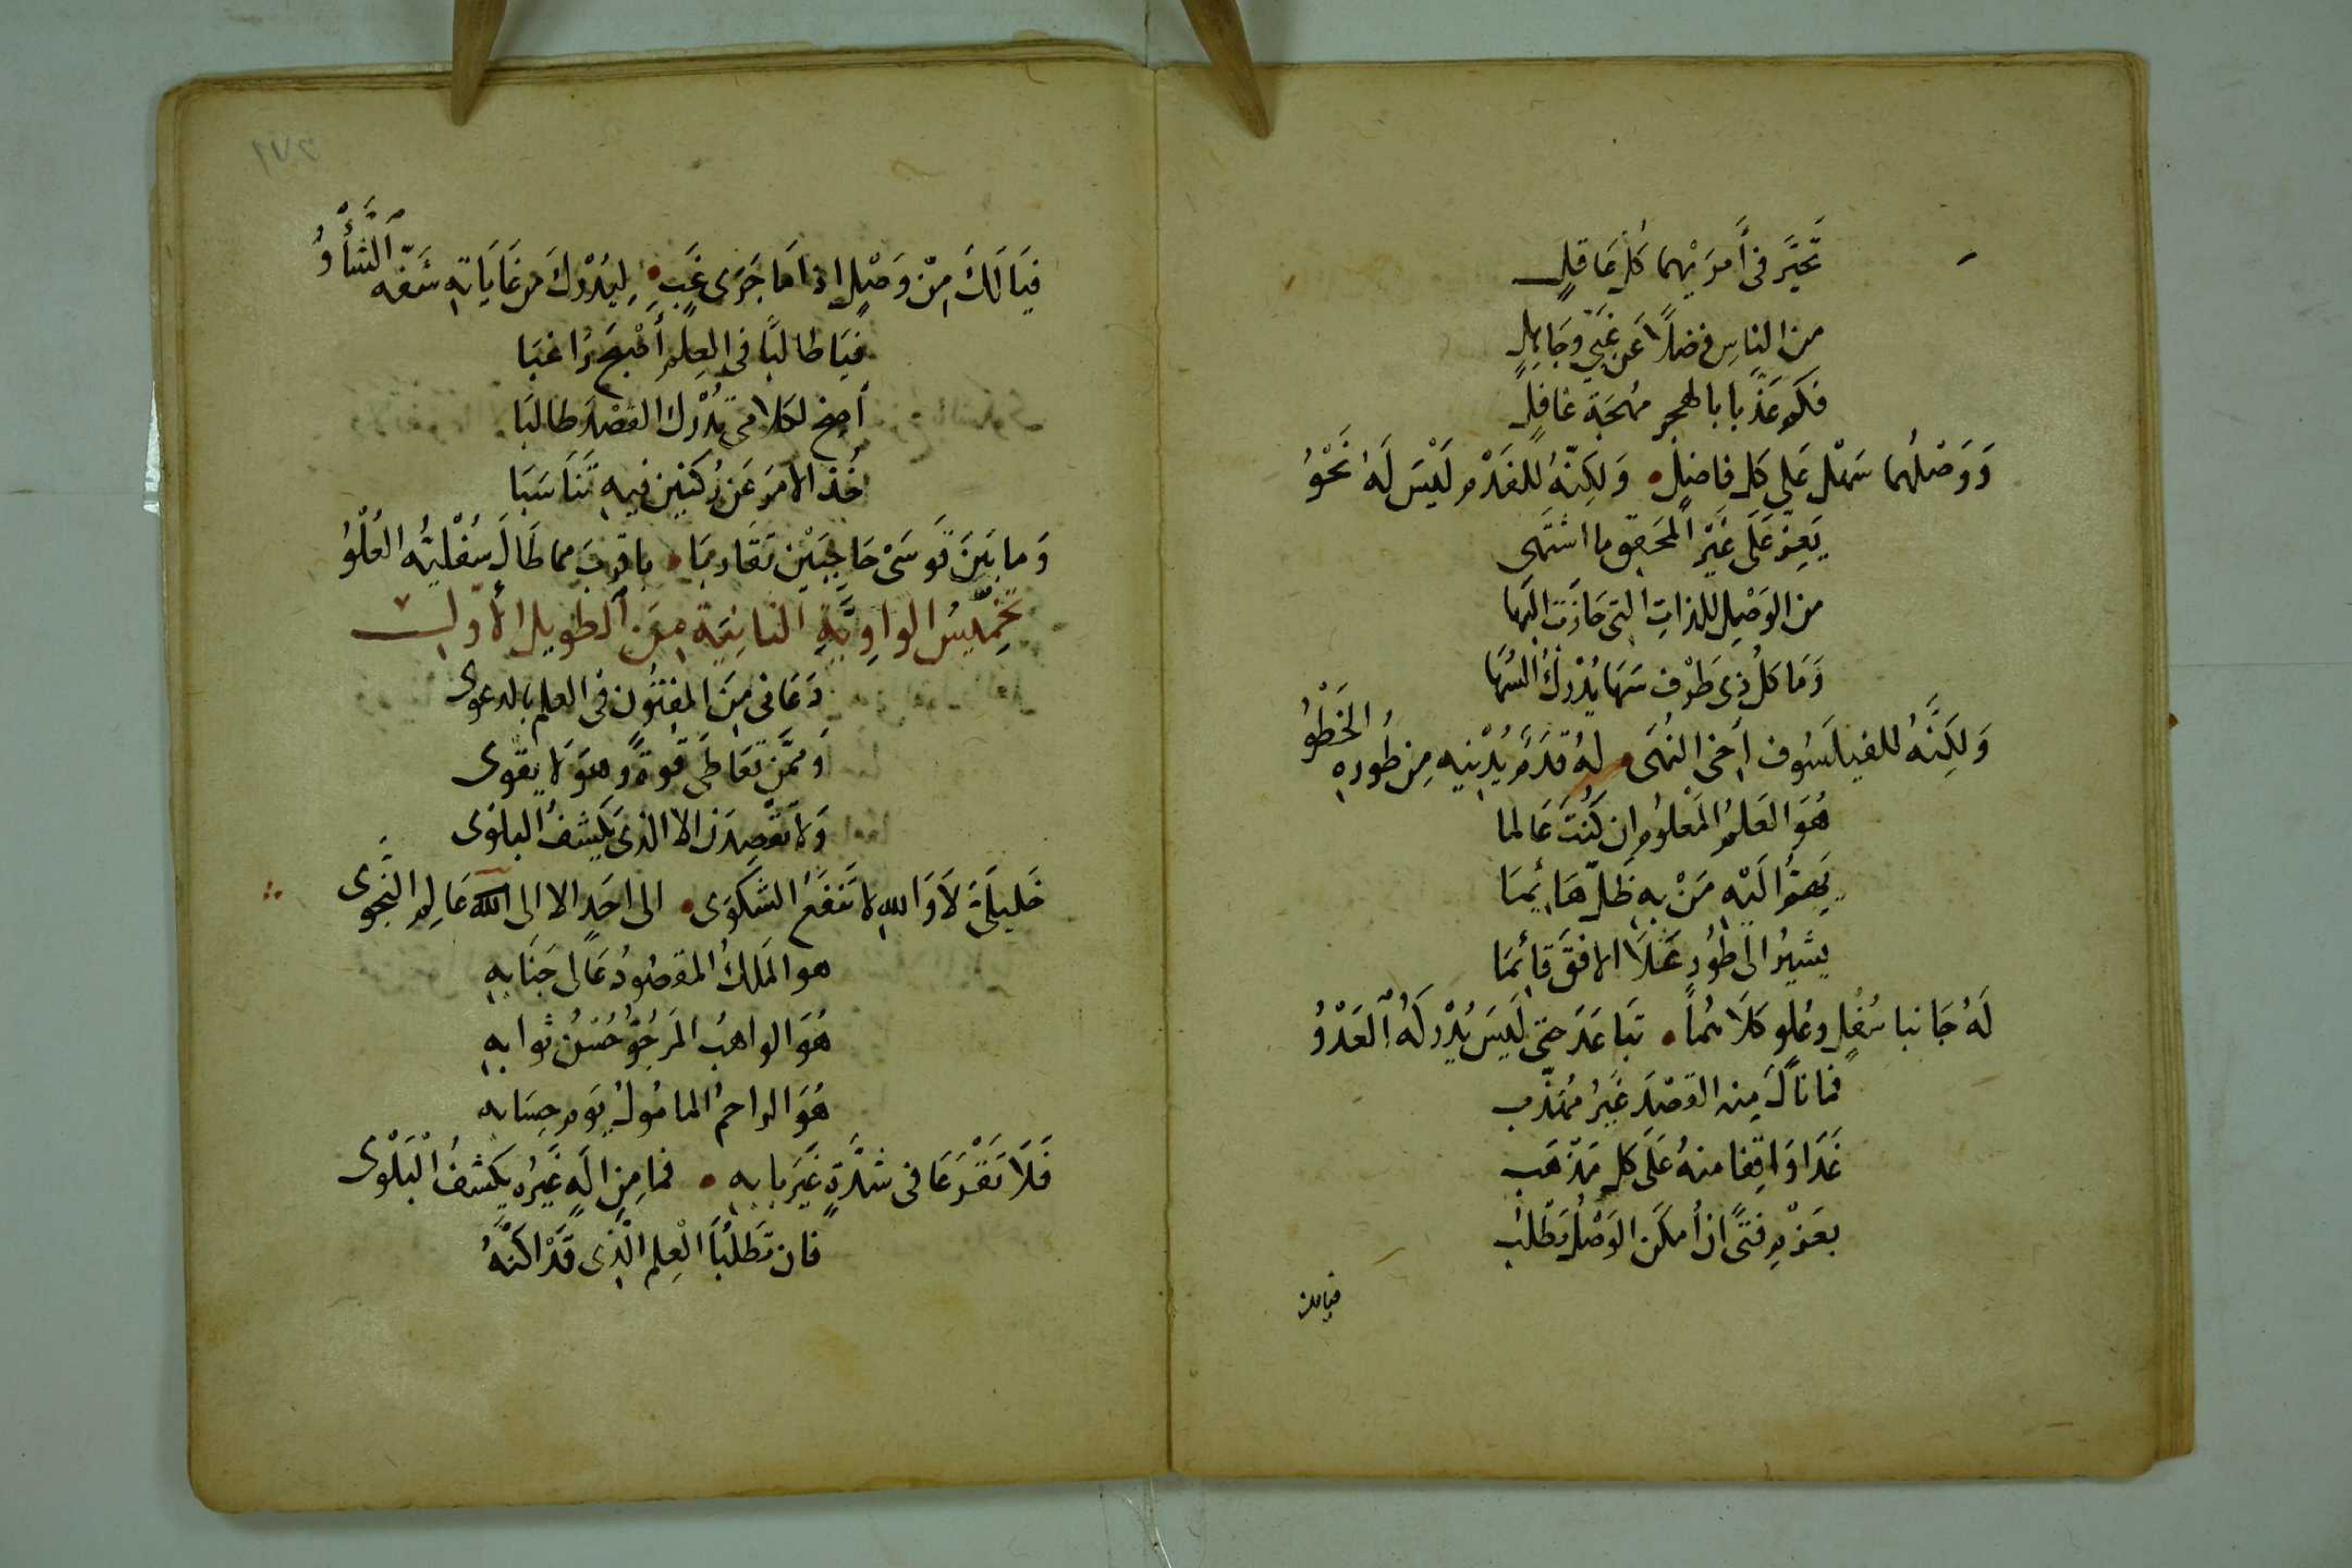 تَحَيَّرَ فى أَمرَيْهما كُل عَاقلٍ
من الناسِ فضلاً عَن غَبيّ وجَاهِلٍ
فكم عَذّبا بالهجر مُهجَة غافلٍ
وَوَصْلُهما سَهْل عَلى كل فاضِلٍ • وَلكِنّهُ للفَدْم لَيْسَ لَهُ نَحْوُ
يَعِزّ عَلَى غَيْر المحَقق ما اشتَهى
من الوَصْلِ للذاتِ التى حَازَت البَها
وَمَا كلُ ذِى طَرْف سَهَا يُدْرِكُ السُهَا
وَلكِنَّهُ للفيلَسُوف أَخى النُهَى • لهُ قدَمٌ يُدْنِيهِ مِن طُورِهِ الخَطْوُ
هُوَ العَلمُ المَعْلوُم ان كُنتَ عَالما
يَهيمُ اليْهِ مَنْ بهِ ظَلّ هَائِمَا
يشيرُ الى طُورٍ عَلَا الافقَ قائِمَا
لَهُ جَانبا سُفْلٍ وعُلوٍ كلَاهُما • تبَاعَدَ حتى لَيسَ يُدْركُهُ العَدْوُ
فما نالَ مِنه القصْدَ غَيرُ مُهَذّب
غَدَا وَاقِفا منهُ عَلَى كل مَذْهَب
بعَزْمِ فتىً ان أمكَن الوَصْلُ يَطْلب
فيالك
٢٧١
فيَا لَكَ مِنْ وَصْلٍ اذا مَا جَرَى غِبِ • لِيُدْرِكَ من غَايَاتهِ شَفّه الشَّأْوُ
فيَا طالبًا فى العِلمِ أَصْبَح رَاغبَا
أصِخ لكلامى تُدْرك القصْدَ طالبَا
خُذ الامرَ عَن رُكنَين فيهِ تَنَاسَبَا
وَما بَينَ قوسَىْ حَاجِبَيْن تقَاربَا • باقربَ مما طَالَ سُفْليّهُ العُلْوُ
تَخْمِيسُ الواوِيَّةِ الثانِيَةِ مِنَ الطويل الأَوّل
دَعَانى مِنَ المفتُون فى العلم بالدعوى
وَممَّن تعَاطَى قُوةً وهوَ لا يقوى
وَلا تقْصِدَن الا الذى يَكشفُ البلوى
خَليلَىَّ لَا وَاللهِ لا تَنفَعُ الشَكوَى • الى احَدٍ الا الى الله عَالِم النَّجوى
هو المَلكُ المقصُودُ عَالى جَنَابهِ
هُوَ الواهِبُ المَرجُوُّ حُسْنُ ثوابهِ
هُوَ الراحمُ المامُولُ يَوم حِسَابه
فَلَا تَقْرَعَا فى شدَّةٍ غَيرَ بابهِ • فما مِن الَهٍ غَيرُه يكشفُ البَلْوَى
فان تَطلُبَا العِلم الَّذى قدْ اكنَّهُ